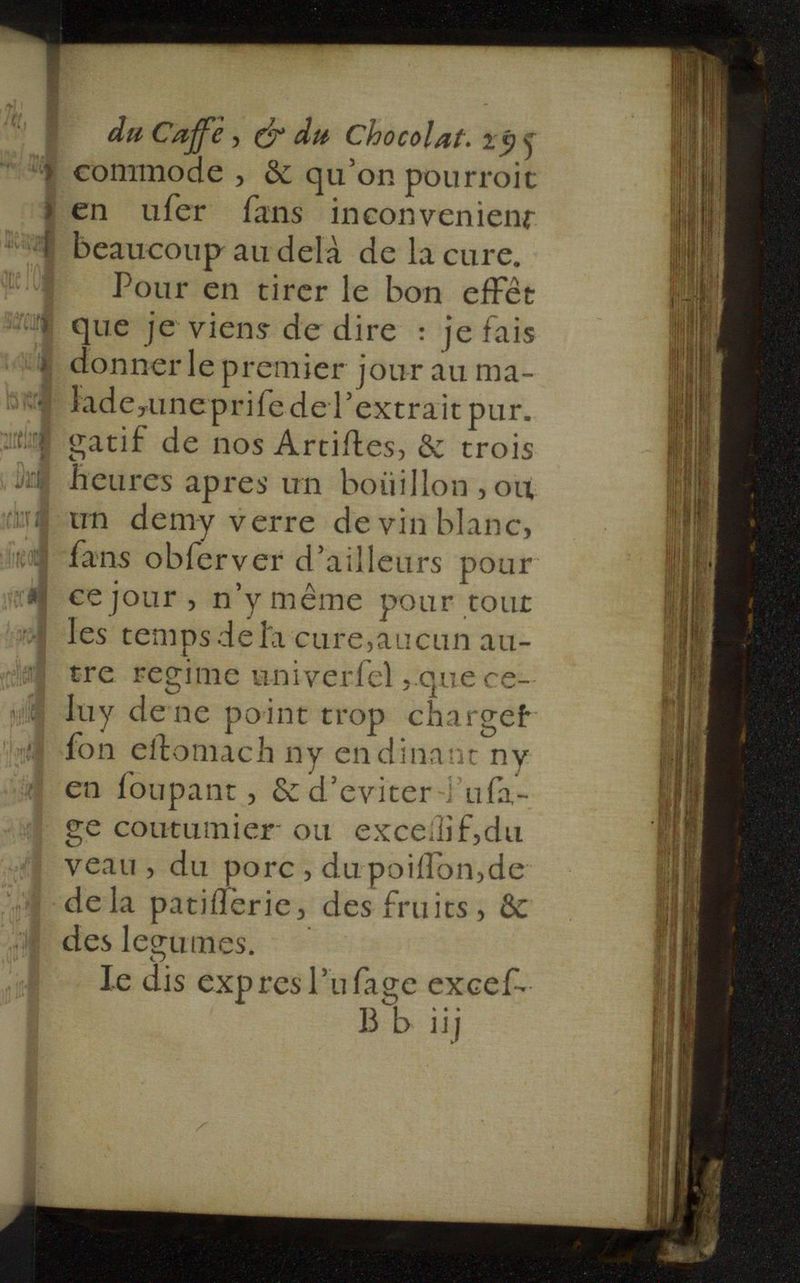 du Caffé, & du Chocolat. 295
commode, & qu'on pourroit
en uſer ſans inconvenient
beaucoup au delà de la cure.
Pour en tirer le bon effêt
que je viens de dire : je fais
donner le premier jour au ma-
lade, une priſe de l'extrait pur.
gatif de nos Artiſtes, & trois
heures apres un boüillon, ou
un demy verre de vin blanc,
ſans obſerver d'ailleurs pour
ce jour, n'y même pour tout
les temps de la cure, aucun au-
tre regime univerſel, que ce-
luy de ne point trop charger
ſon eſtomach ny en dinant ny
en ſoupant, & d'eviter l'uſa-
ge coutumier ou exceſſif, du
veau, du porc, du poiſſon, de
de la patiſſerie, des fruits, &
des legumes.
Ie dis expres l'uſage exceſ-
B b iij